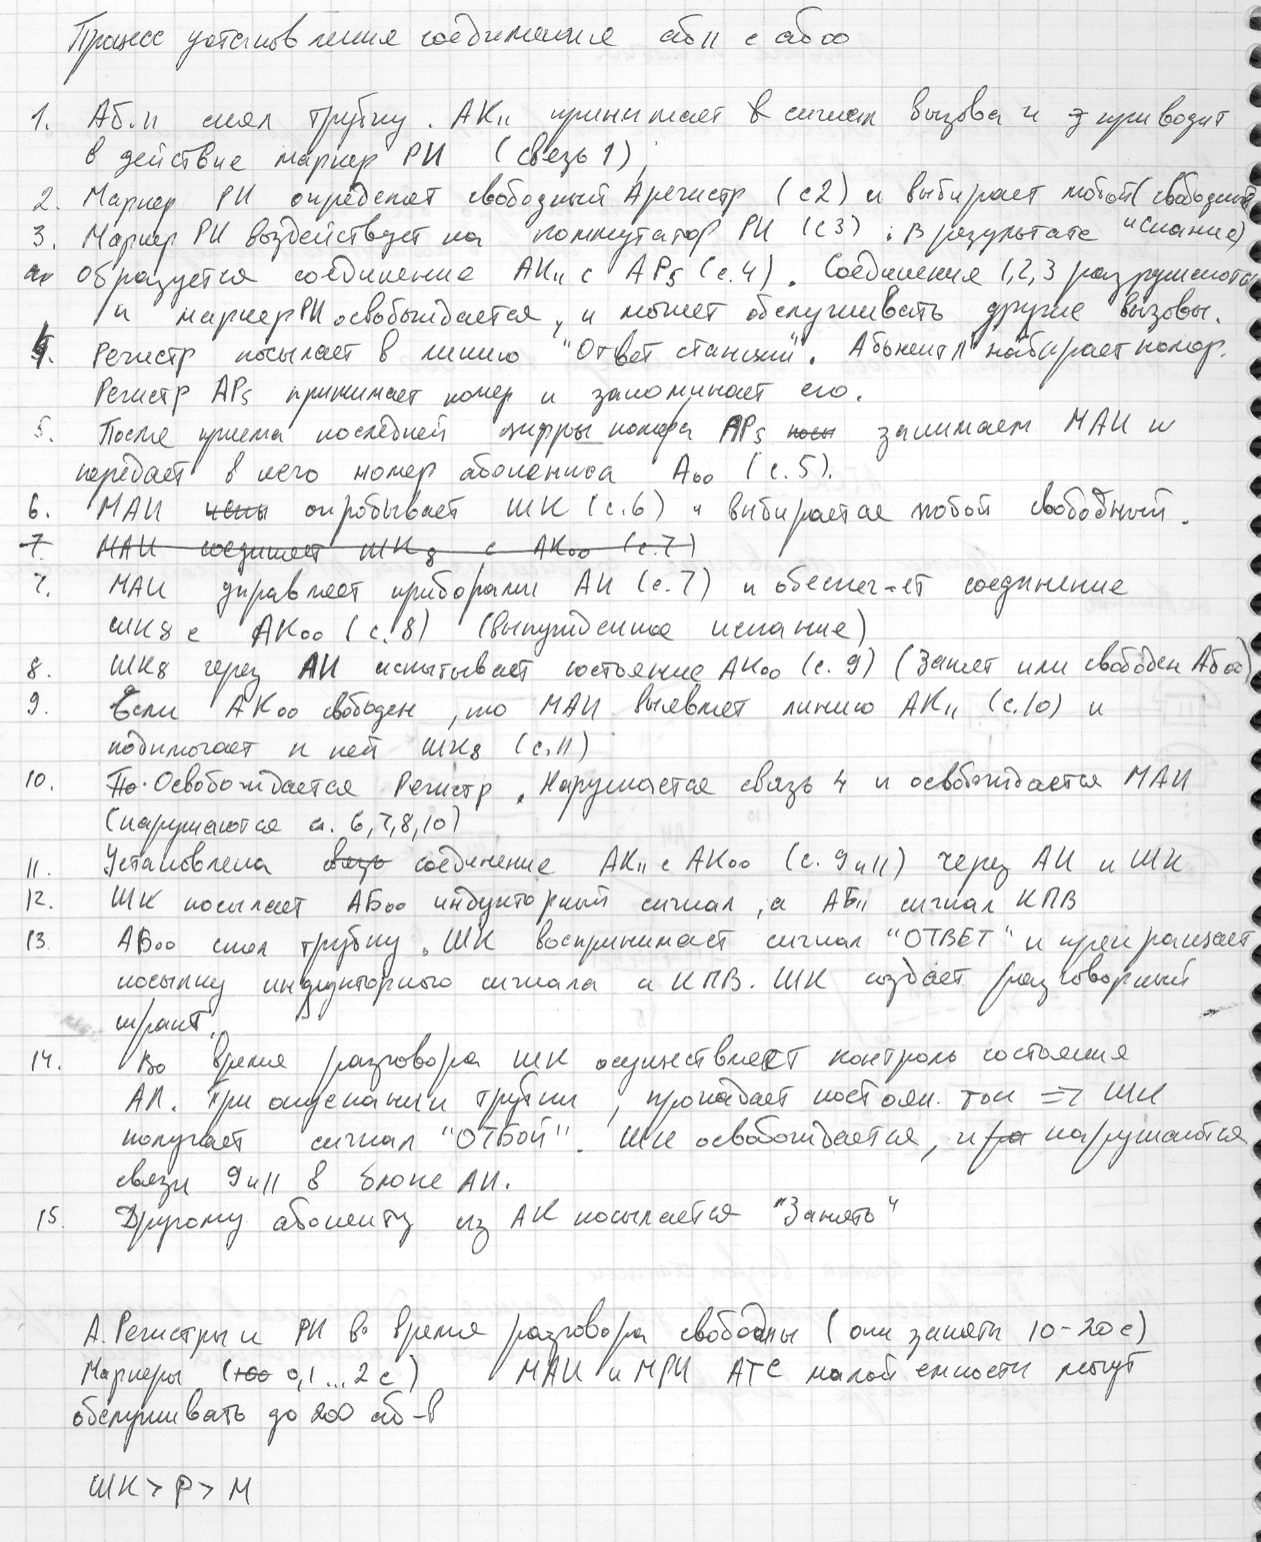 Процесс установления соединения аб11 с аб00
1. Аб.11 снял трубку. АК11 принимает сигнал вызова и приводит
в действие маркер РИ (связь 1);
2. Маркер РИ определяет свободный Арегистр (с2) и выбирает любой (свободный
3. Маркер РИ воздействует на коммутатор РИ (с3). В результате "искание)
образуется соединение АК11 с АР5 (с.4). Соединения 1,2,3 разрушаются
и маркер РИ освобождается, и может обслуживать другие вызовы.
4. Регистр посылает в линию "Ответ станции". Абонент11 набирает номер.
Регистр АР5 принимает номер и запоминает его.
5. После приема последней цифры номера АР5 занимает МАИ и
передает в него номер абонента А00 (с.5).
6. МАИ опробывает ШК (с.6) и выбирается любой свободный.
7. МАИ соединяет ШК8 с АК00 (с.7)
7. МАИ управляет приборами АИ (с.7) и обеспеч-ет соединение
ШК8 с АК00 (с.8) (вынужденное искание)
8. ШК8 через АИ испытывает состояние АК00 (с.9) (Занят или свободен Аб00)
9. Если АК00 свободен, то МАИ выявляет линию АК11 (с.10) и
подключает к ней ШК8 (с.11)
10. Освобождается Регистр. Нарушается связь 4 и освобождается МАИ
(нарушаются с. 6,7,8,10)
11. Установлена связь соединение АК11 с АК00 (с. 9 и 11) через АИ и ШК
12. ШК посылает АБ00 индукторный сигнал, а АБ11 сигнал КПВ
13. АБ00 снял трубку. ШК воспринимает сигнал "ОТВЕТ" и прекращает
посылку индукторного сигнала и КПВ. ШК создает разговорный
тракт.
14. Во время разговора ШК осуществляет контроль состояния
АЛ. При опускании трубки, пропадает постоян. ток => ШК
получает сигнал "ОТБОЙ". ШК освобождается, и нарушаются
связи 9 и 11 в блоке АИ.
15. Другому абоненту из АК посылается "Занято"
А. Регистры и РИ во время разговора свободны (они заняты 10-20с)
Маркеры (0,1...2 с) МАИ и МРИ АТС малой емкости могут
обслуживать до 200 аб-в
ШК > Р > М